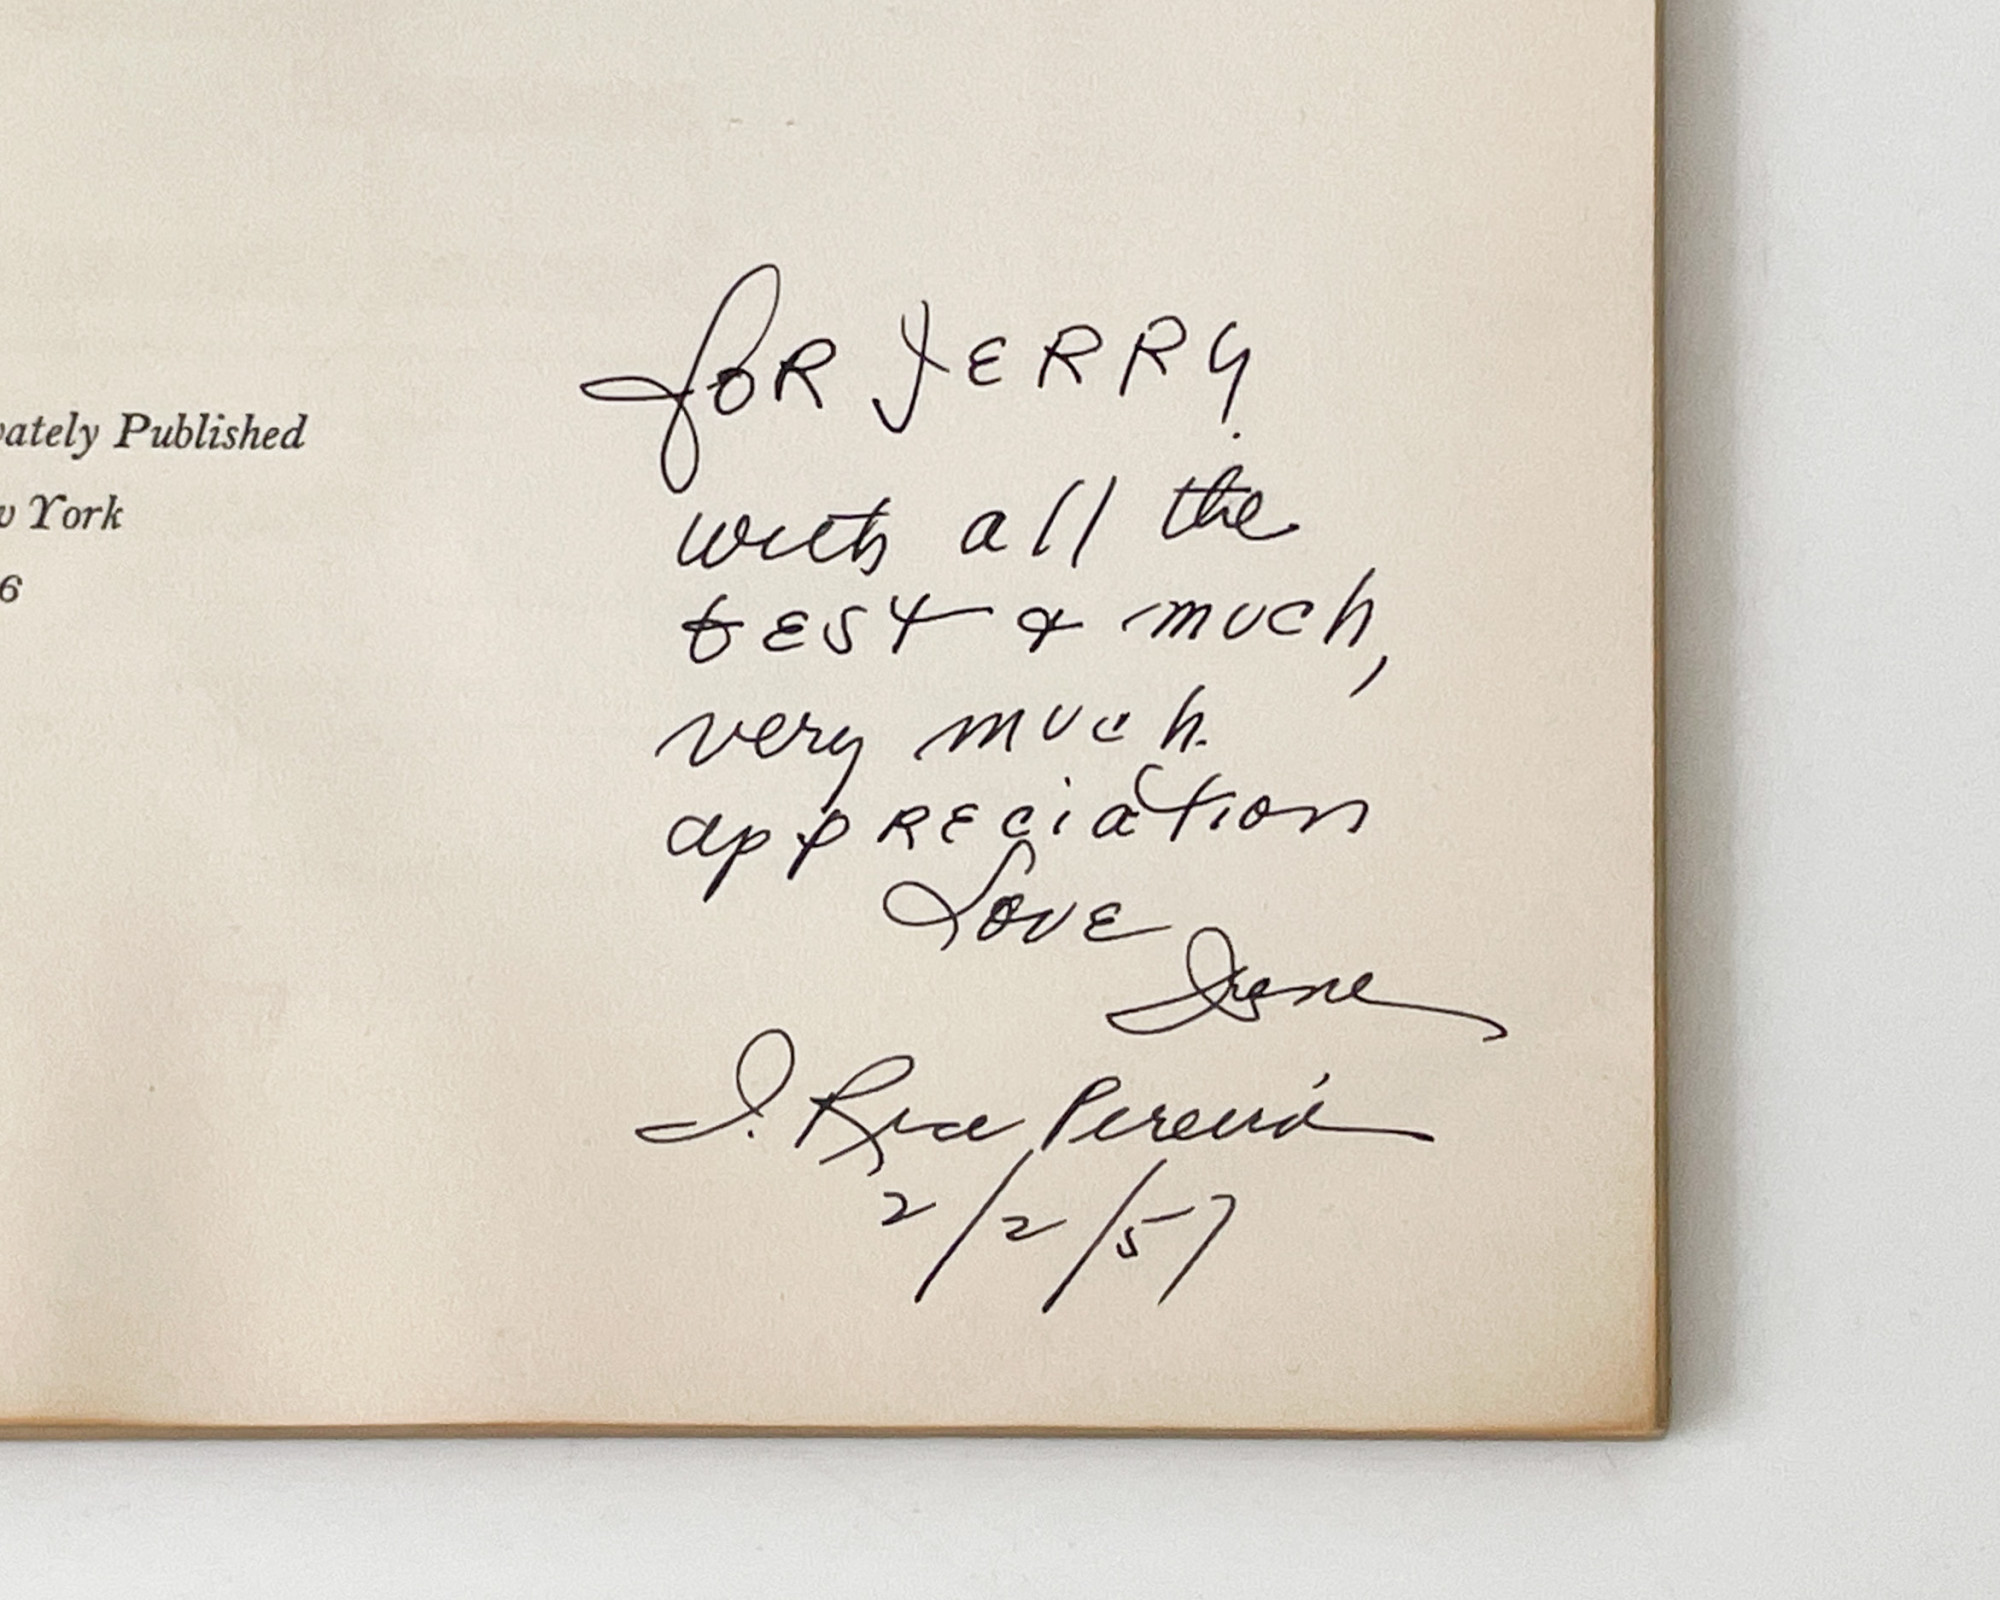 vately Published
w York
6
for JERRY.
with all the
best & much,
very much
appreciation
Love
Irene
I. Rice Pereira
2/2/57